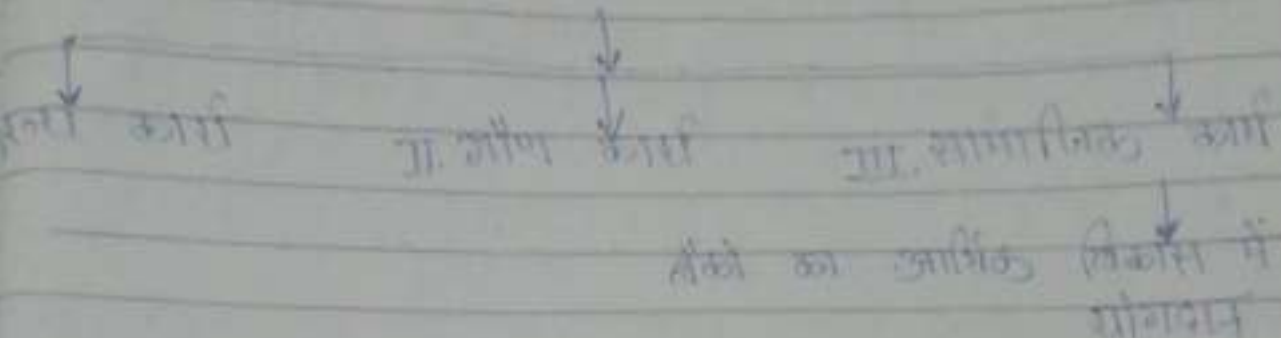 कार्य II. गौण कार्य III. सामाजिक कार्य
बैंको का आर्थिक विकास में
योगदान